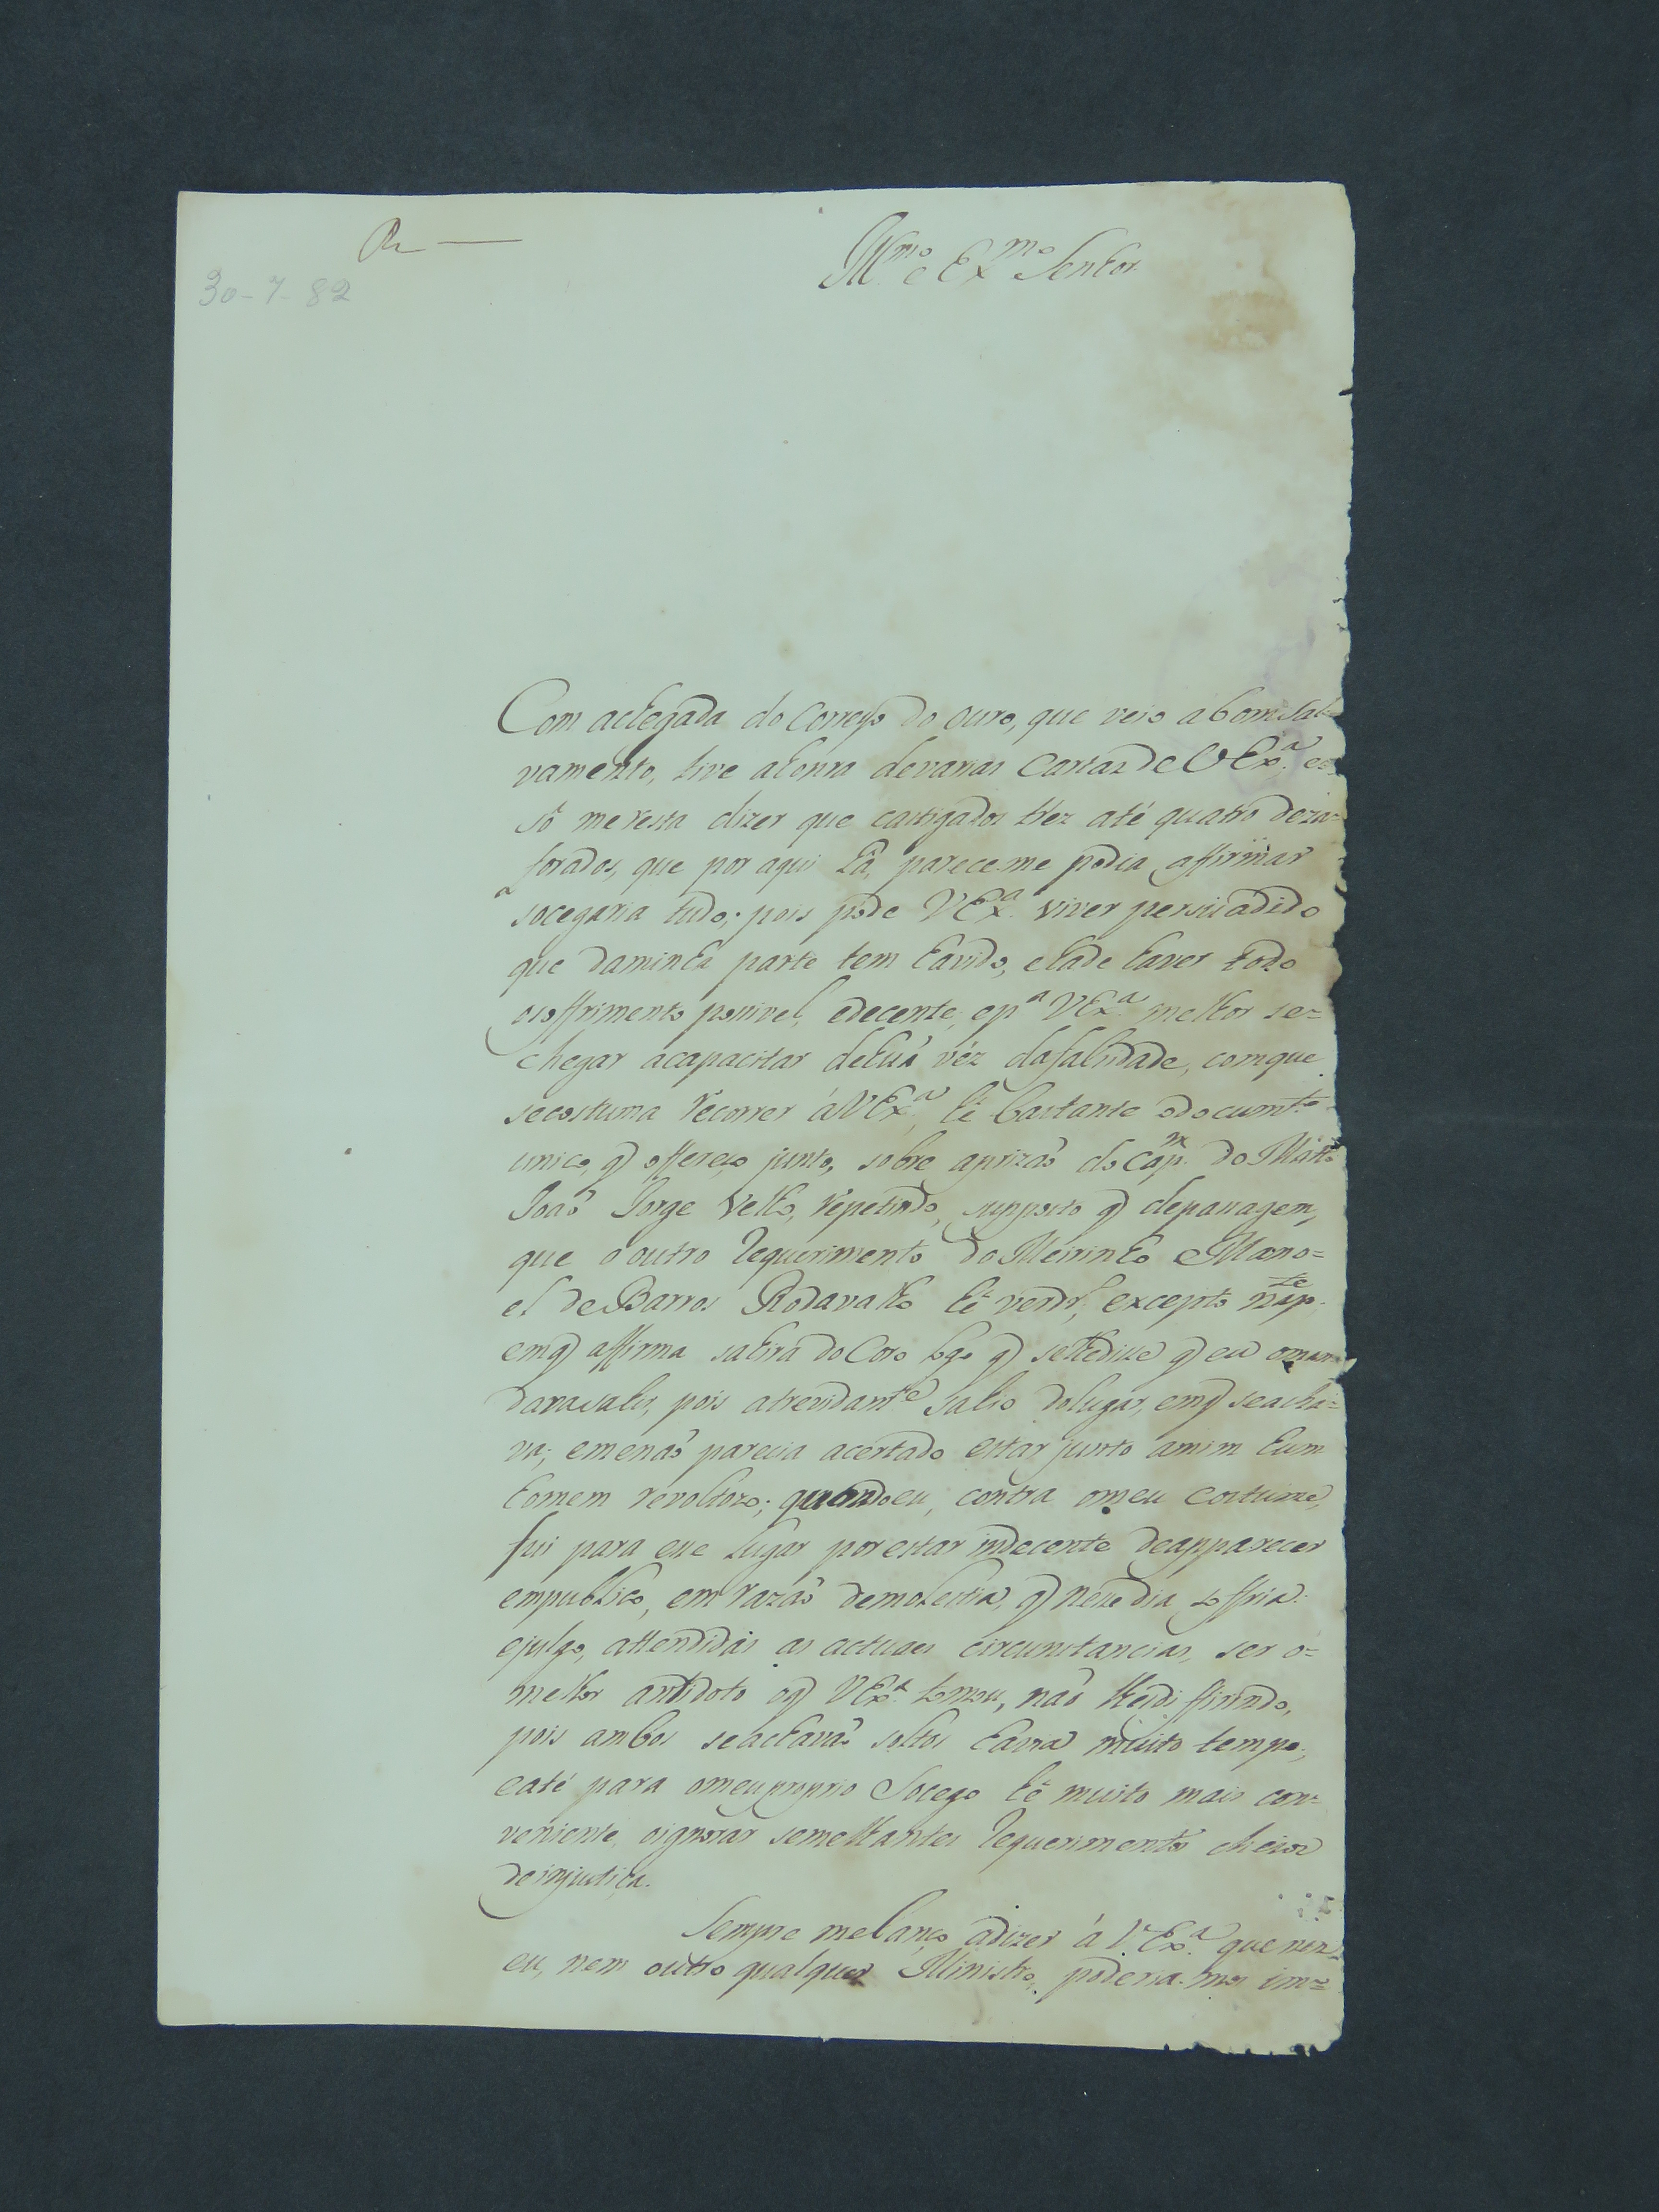 R
30-7-82
Illmo e Exmo Senhor
Com achegada do Correyo do Ouro, que veio abomsal=
vamento, tive ahonra devarias Cartas de VExa. e
só meresta dizer que castigados trez até quatro deza=
forados, que por aqui há, parece-me podia affirmar
socegaria tudo; pois póde VExa. viver persuadido
que daminha parte tem havido, ehade haver todo
osoffrimento possivel, edecente; epa VExa. melhor se=
chegar acapacitar dehuã vêz dafalsidade, comque
secostuma recorrer áVExa, hé bastante odocumto
unico, q̃ offereço junto, sobre aprizaõ do Capm. do Matto
Joaõ Jorge Velho, repetindo, supposto q̃ depassagem,
que o outro requerimento do Meirinho Mano=
el de Barros Rodavalho hé verdr, excepto na pte
emq̃ affirma sahira do Coro logo q̃ selhedisse q̃ eu oman
daravahir, pois atrevidamte sahio dolugar, emq̃ seacha=
va; emenaõ parecia acertado estar junto amim hum
homem revoltozo; quandoeu, contra omeu costume,
fui para esse lugar porestar indecente deapparecer
empublico, em razaõ demolestia, q̃ nesse dia soffria:
ejulgo, attendidas as actuaes circunstancias, ser o=
melhor antidoto oq̃ VExa. tomou, naõ lhediffirindo,
pois ambos seachavaõ soltos havia muito tempo;
eaté para omeuproprio Socego hé muito mais con=
veniente oignorar semelhantes requerimentos cheios
deinjustiça.
Sempre melanço adizer á V.Exa. que nem
eu, nem outro qualquer Ministro, poderia-mos im=